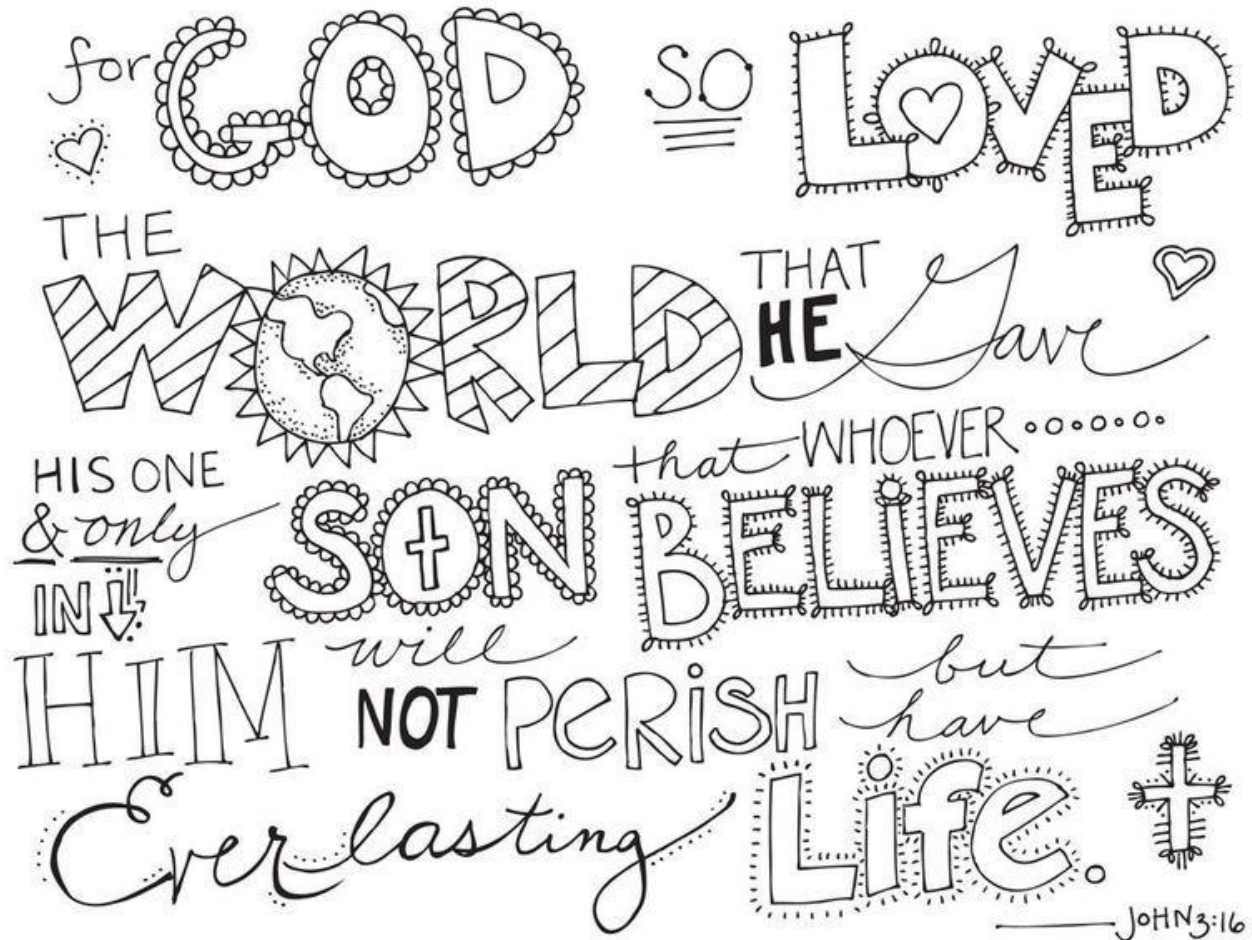 for GOD so LOVED
THE
WORLD THAT
HE Gave
HIS ONE
& only
SON that WHOEVER
BELIEVES
IN
HIM will
NOT PERiSH but
have
Everlasting Life.
JOHN 3:16